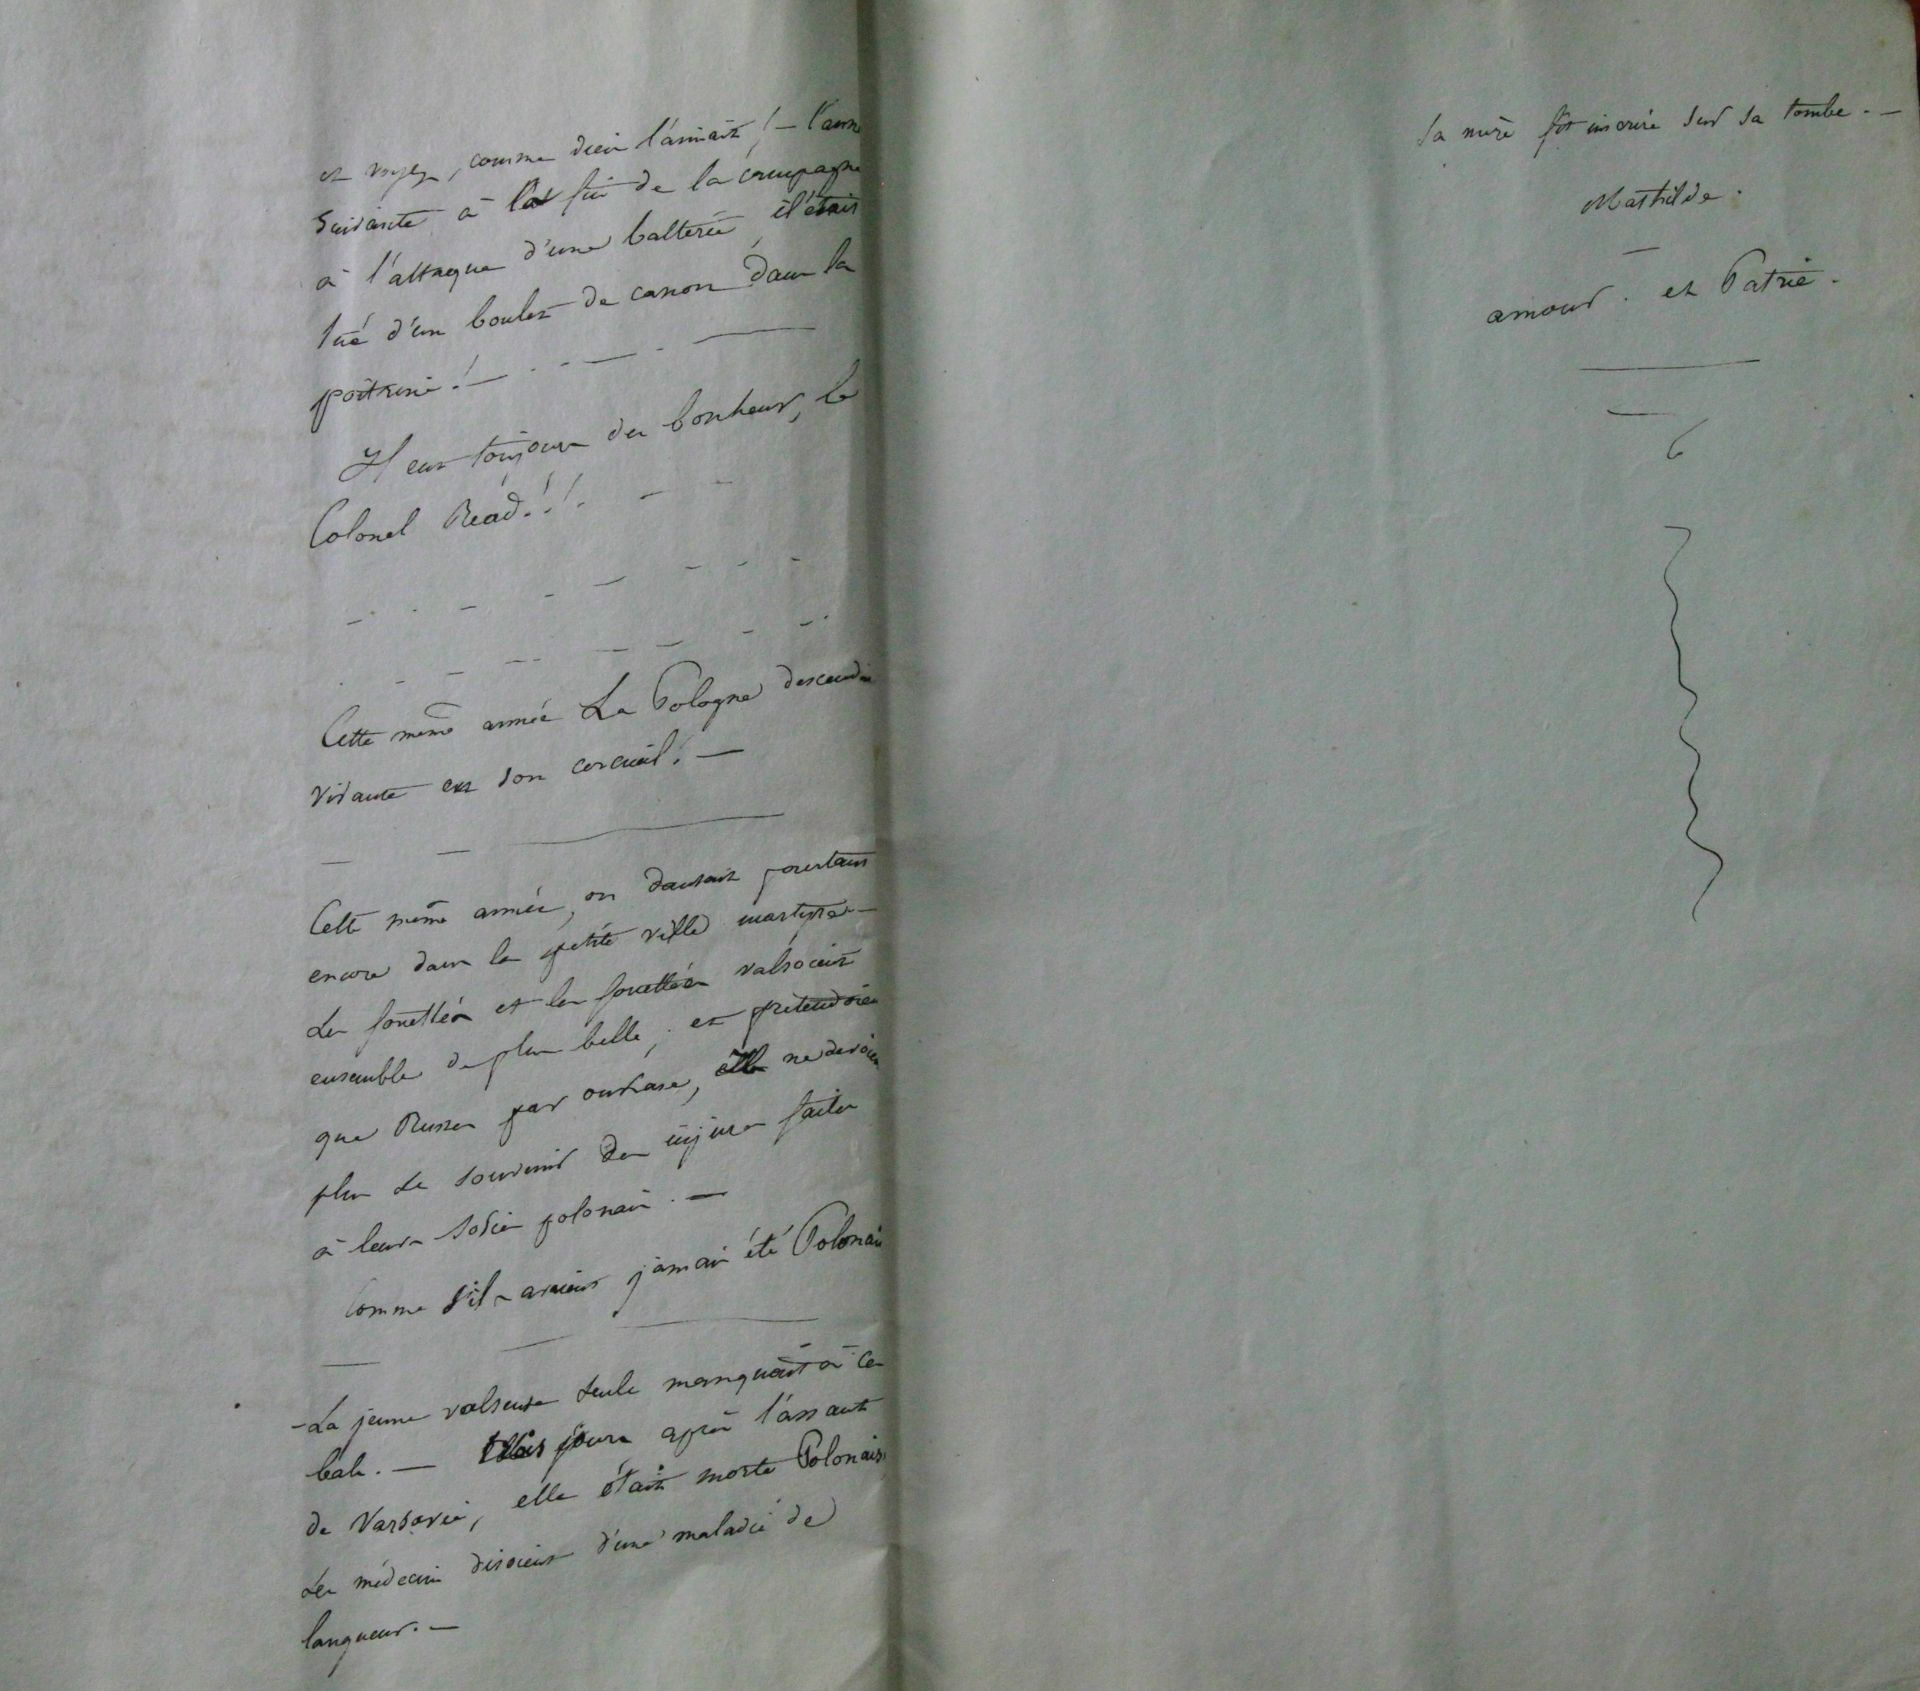 et voyez, comme dieu l'aimait ! — l'anné
suivante à la fin de la campagne
à l'attaque d'une batterie, il était
tué d'un boulet de canon dans la
poitrine ! —
Il eut toujours du bonheur, le
Colonel Read ! !
Cette même année La Pologne descendit
vivante en son cercueil ! —
Cette même année, on dansait pourtant
encore dans la petite ville martyre —
Les fouettés et les fouettées valsoient
ensemble de plus belle ; et pretendoien
que Russes par oukase, ne devoien
plus se souvenir des injures faites
à leurs sosies polonais . —
Comme s'ils avaient jamais été Polonais
— La jeune valseuse seule manquait à ces
bals. — Trois jours après l'assaut
de Varsovie, elle était morte Polonaise
Les médecins disoient d'une maladie de
langueur. —
Sa mère fit inscrire sur sa tombe . —
Mathilde .
amour . et Patrie .